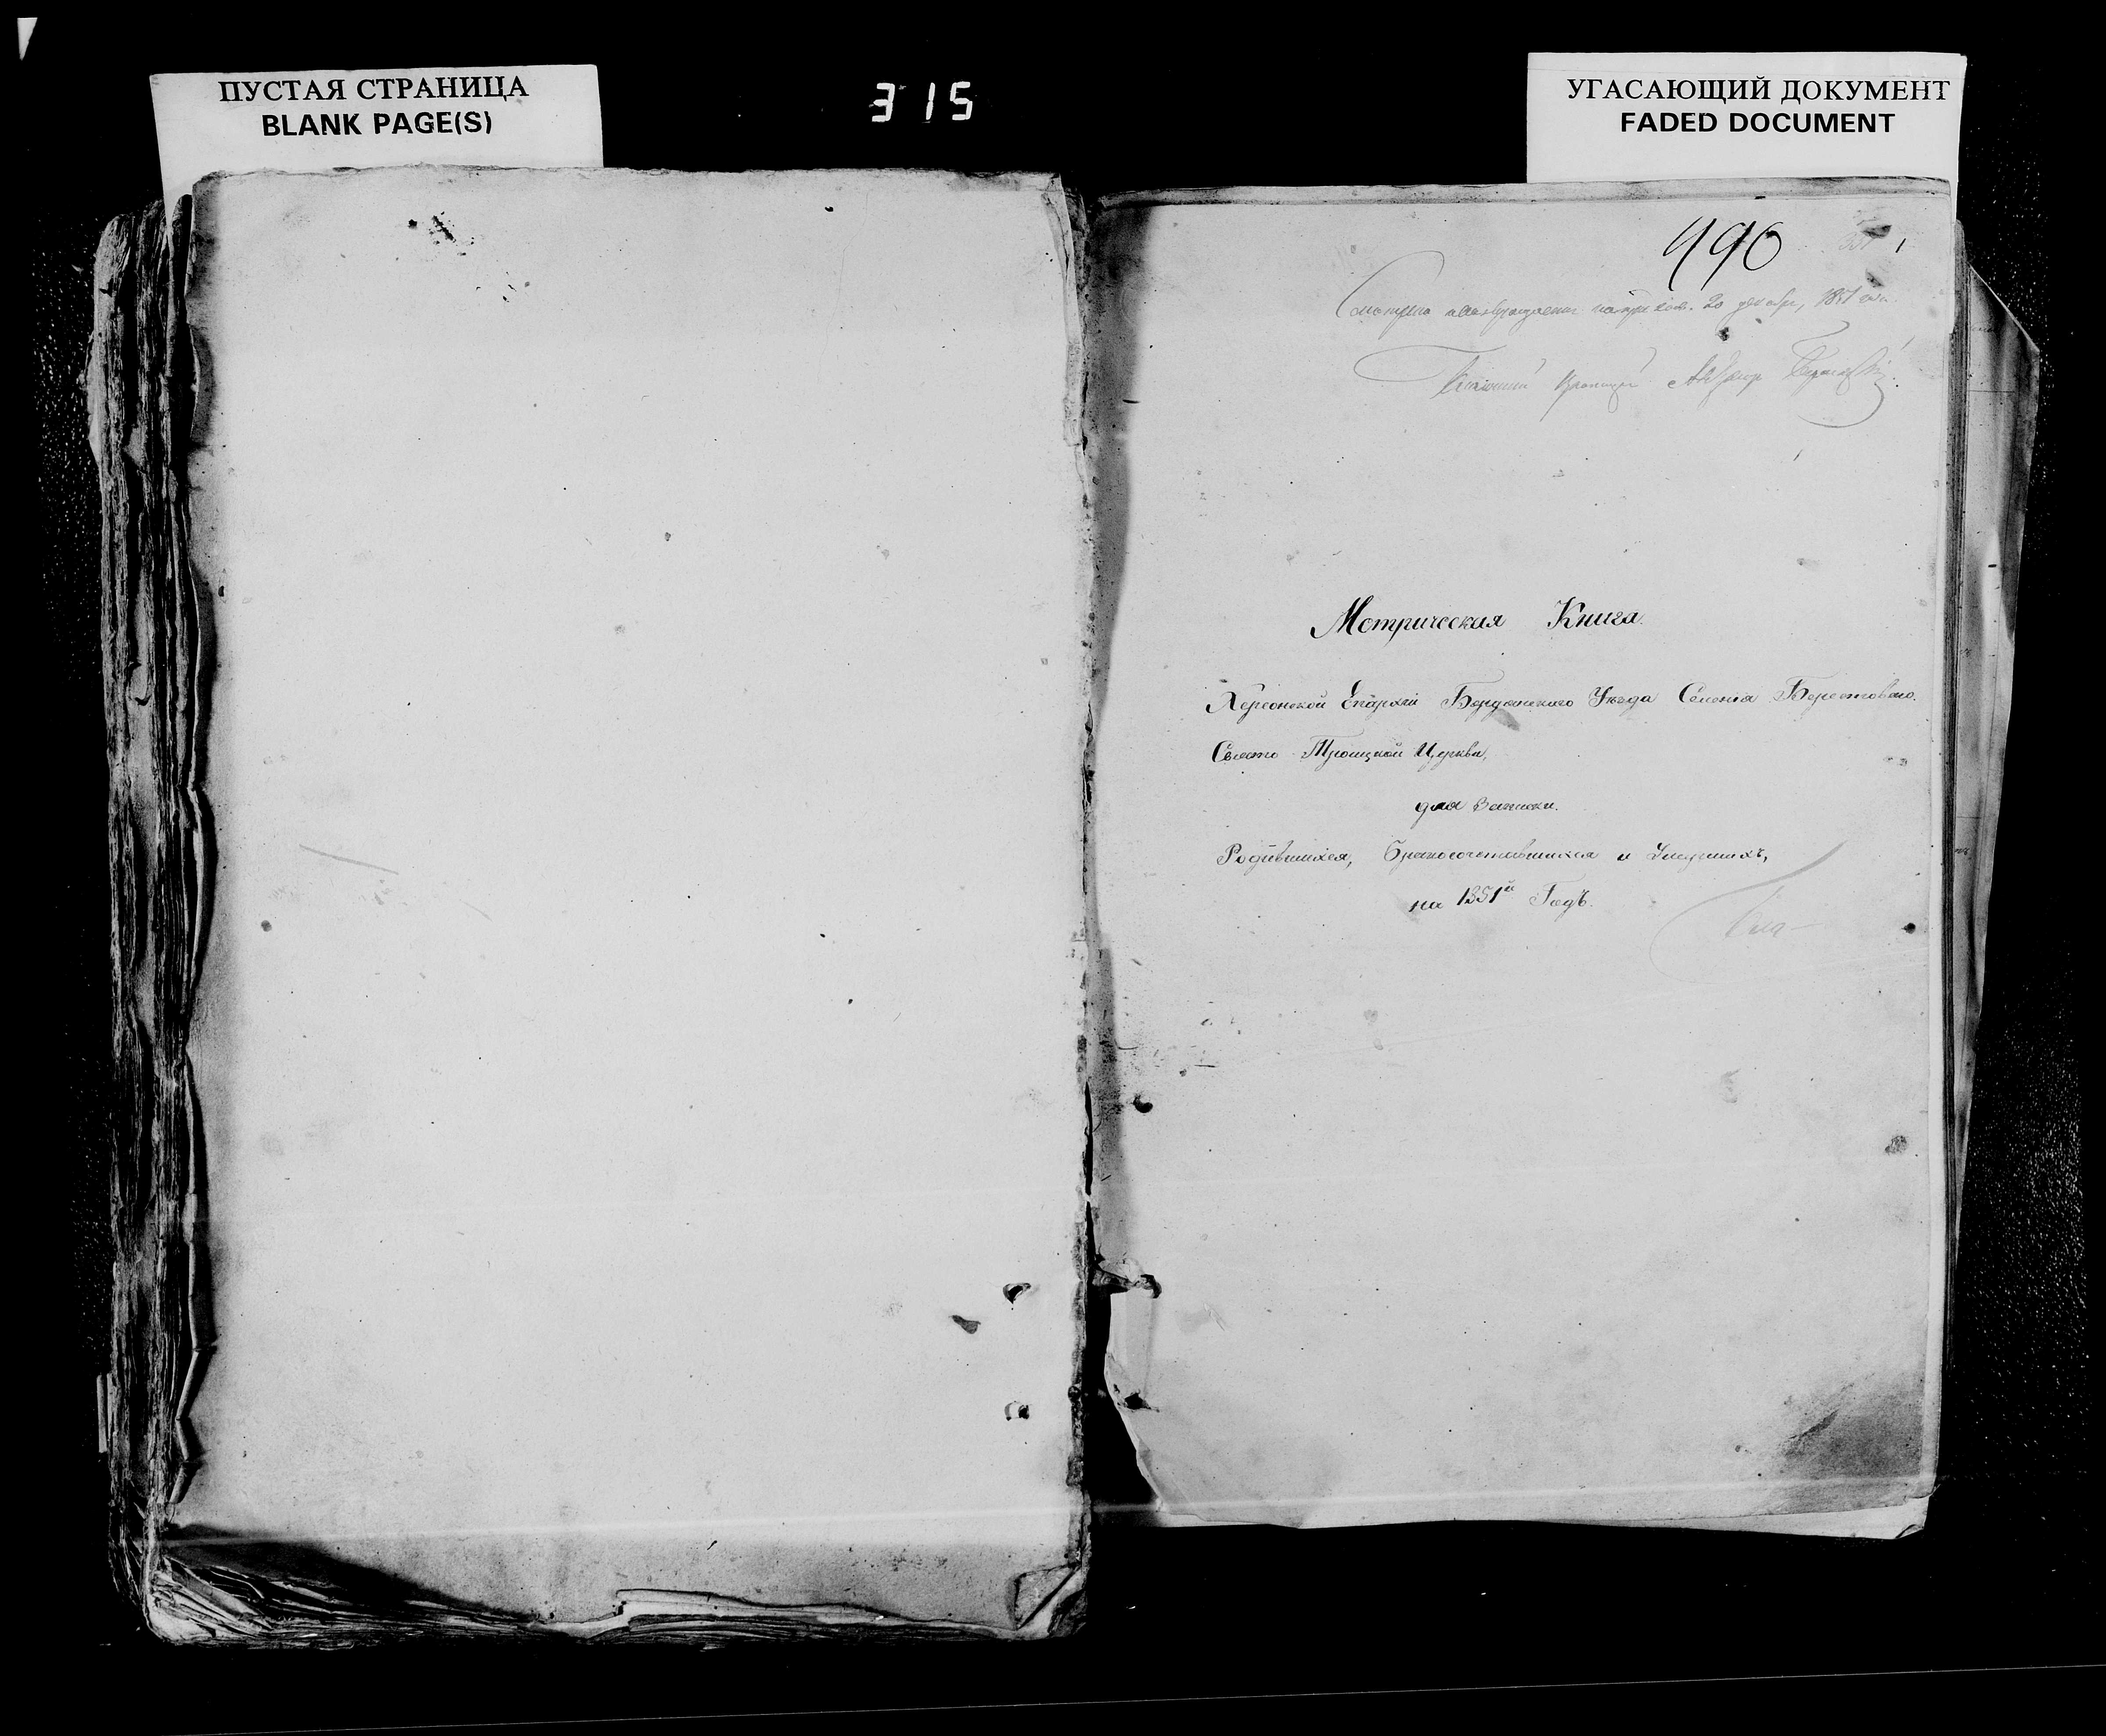 ПУСТАЯ СТРАНИЦА
BLANK PAGE(S)
315
УГАСАЮЩИЙ ДОКУМЕНТ
FADED DOCUMENT
490
20 декабря, 1851 года
Метрическая Книга.
Херсонской Епархіи Бердянского Уѣзда Селенія Берестоваго.
Свято-Троицкой Церкви,
для записки.
Родившихся, Бракосочетавшихся и Умершихъ,
на 1851й Годъ.